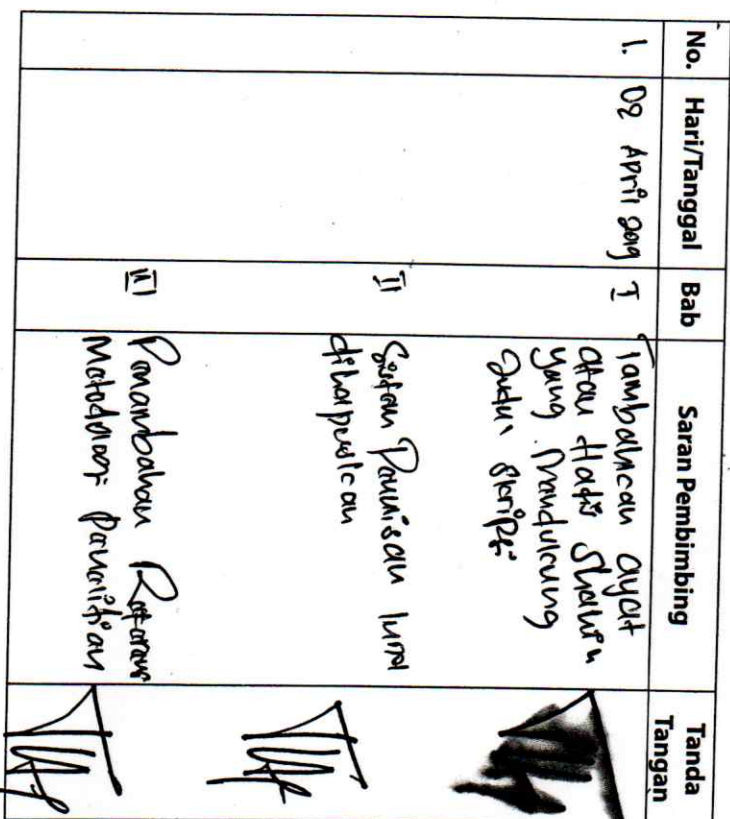 No. Hari/Tanggal Bab Saran Pembimbing Tanda Tangan
1. 02 April 2019 I Tambahkan ayat
atau Hadis Shahih
yang Mendukung
Judul Skripsi
II Sistem Penulisan
diharapkan
III Penambahan
Metodologi Penelitian